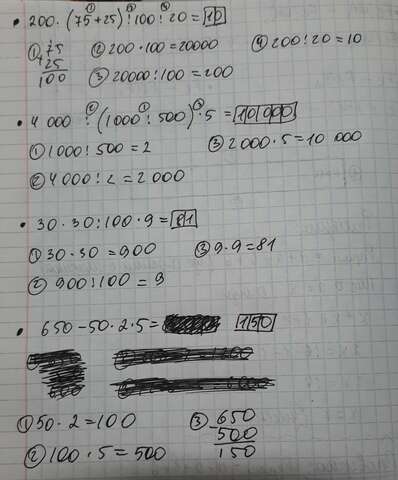 • 200 · (75+25) : 100 : 20 = 10
① 75 + 25 = 100 ② 200 · 100 = 20000 ④ 200 : 20 = 10
③ 20000 : 100 = 200
• 4 000 : (1000 : 500) · 5 = 10 000
① 1000 : 500 = 2 ③ 2 000 · 5 = 10 000
② 4 000 : 2 = 2 000
• 30 · 30 : 100 · 9 = 81
① 30 · 30 = 900 ③ 9 · 9 = 81
② 900 : 100 = 9
• 650 - 50 · 2 · 5 = 150
① 50 · 2 = 100 ③ 650
② 100 · 5 = 500 - 500
150